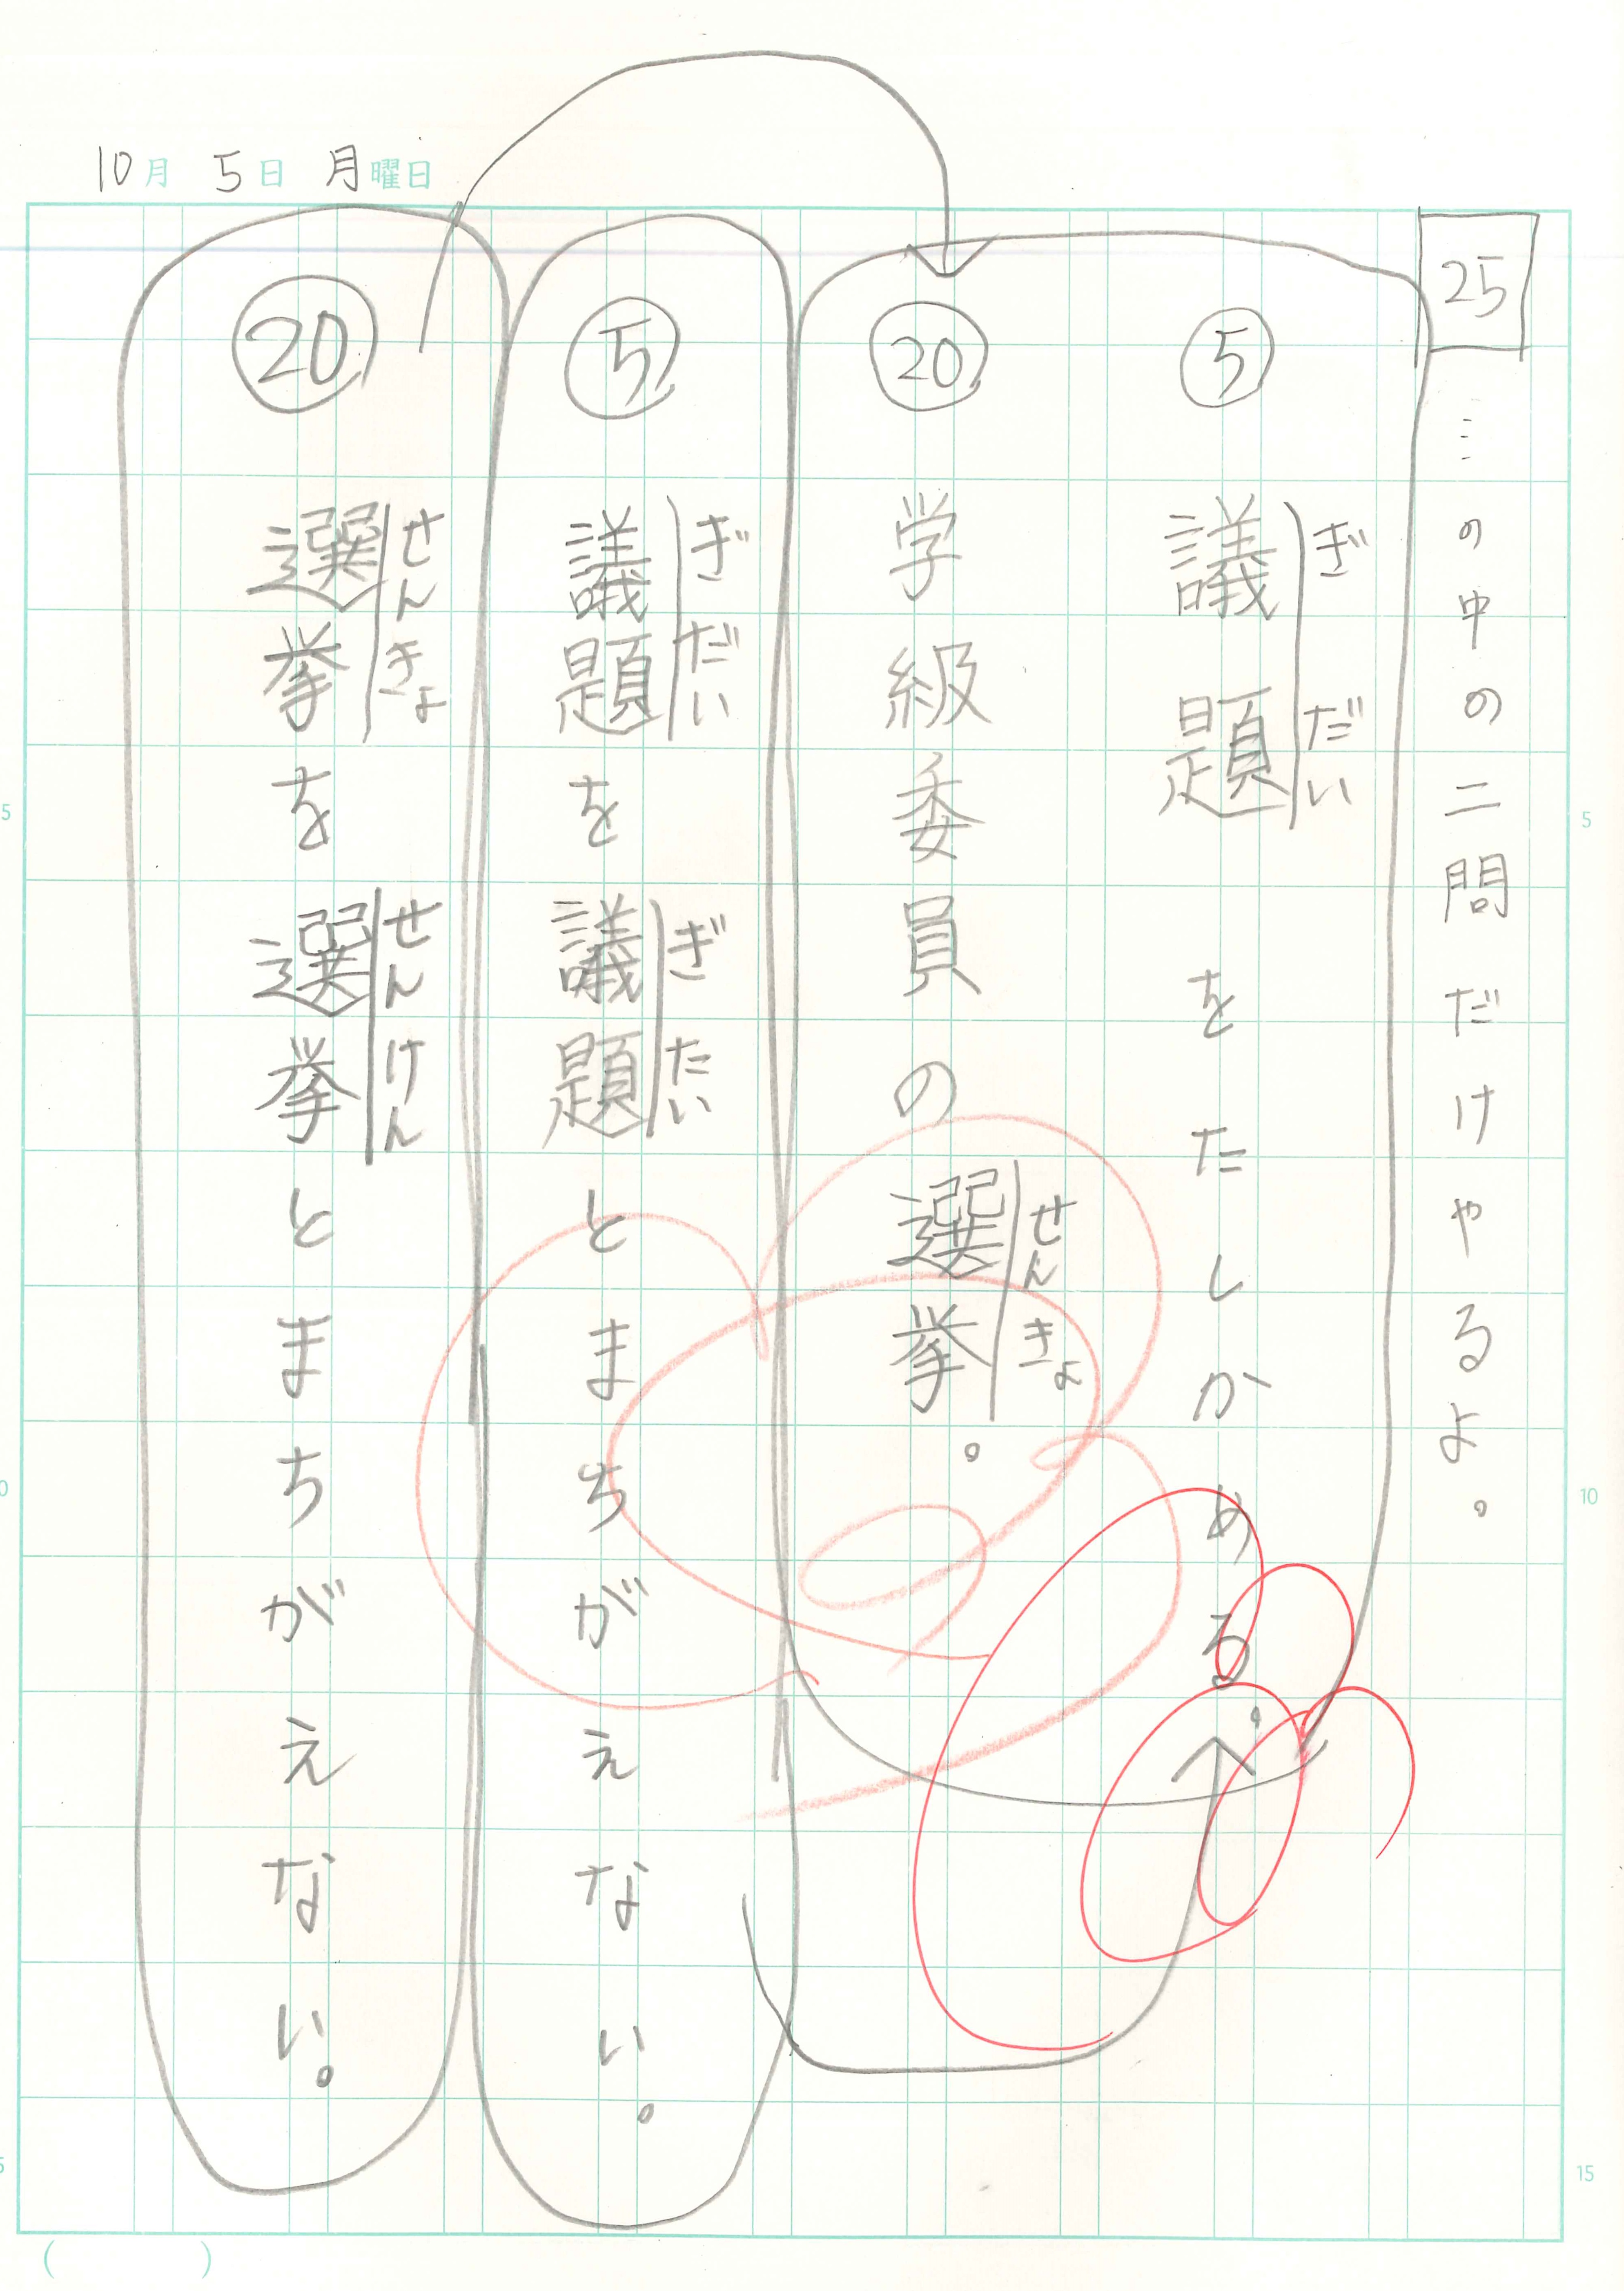 10月 5日 月曜日
25 …の中の二問だけやるよ。
⑤ 議題をたしかめる。
ぎだい
⑳ 学級委員の選挙。
せんきょ
⑤ 議題を議題とまちがえない。
ぎだい ぎたい
⑳ 選挙を選挙とまちがえない。
せんきょ せんけん
5
10
15
5